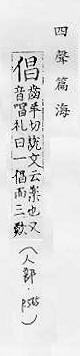 四聲篇海
倡
齒羊切說文云樂也又
音唱礼曰一倡而三歎
(人部·P585)